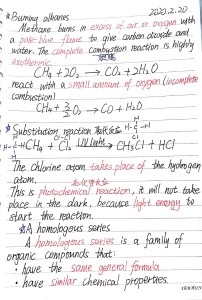 2020.2.20
*Burning alkanes
Methane burns in excess of air or oxygen with
a pale-blue flame to give carbon dioxide and
water. The complete combustion reaction is highly
exothermic.
CH₄ + 2O₂ → CO₂ + 2H₂O
react with a small amount of oxygen (incomplete
combustion)
CH₄ + 3/2 O₂ → CO + H₂O
*Substitution reaction
CH₄ + Cl₂ UV light → CH₃Cl + HCl
The chlorine atom takes place of the hydrogen
atom.
This is photochemical reaction, it will not take
place in the dark, because light energy to
start the reaction.
*A homologous series
A homologous series is a family of
organic compounds that:
• have the same general formula
• have similar chemical properties